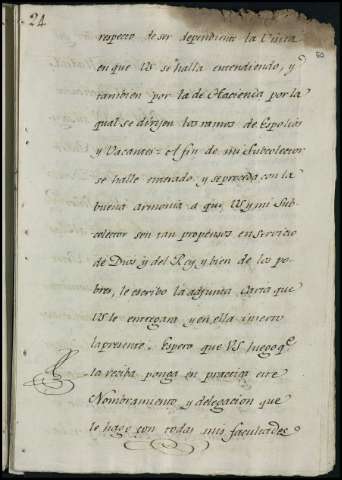 24
80
respecto de ser dependiente la Visita
en que VS se halla entendiendo, y
tambien por la de Hacienda por la
qual se dirijen los ramos de Espolios
y Vacantes = el fin de mi Subcolector
se halle enterado y se proceda con la
buena armonia a que VS y mi Sub-
colector son tan propensos en servicio
de Dios y del Rey y bien de los po-
bres, le escribo la adjunta Carta que
VS le entregara y en ella inserto
la presente. Espero que VS luego qe
la reciba ponga en practica este
Nombramiento y delegacion que
le hago con todas mis facultades